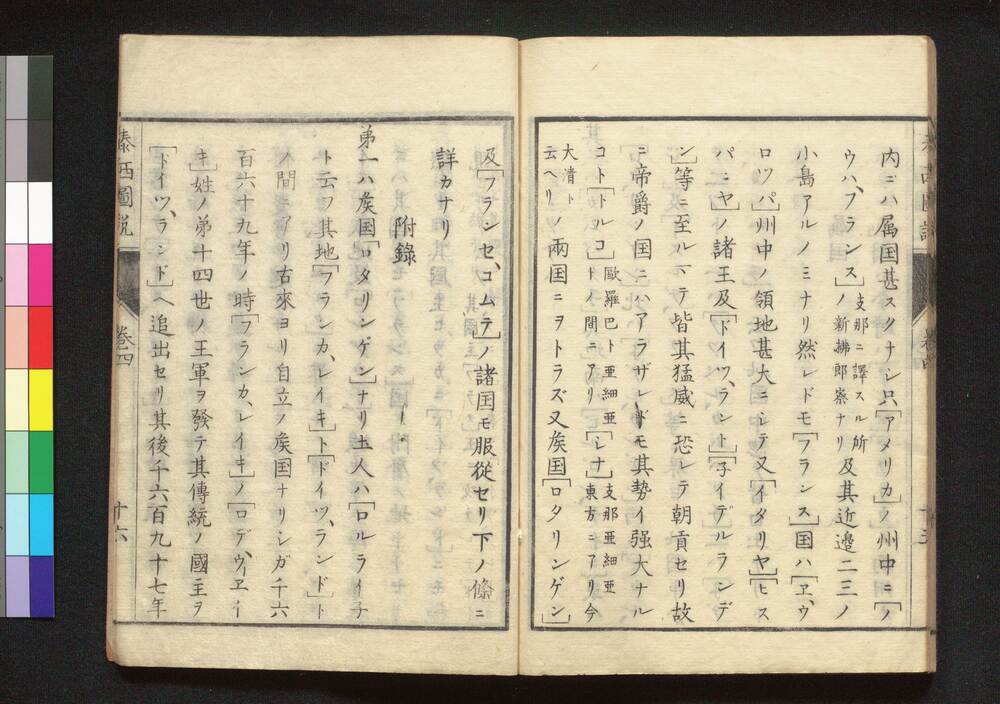 内ニハ属国甚スクナシ只「アメリカ」ノ州中ニ「ノ
ウハ、フランス」支那ニ譯スル所ノ新拂郎察ナリ及其近邉二三ノ
小島アルノミナリ然レドモ「フランス」国ハ「ヱ、ウ
ロツパ」州中ノ領地甚大ニシテ又「イタリヤ」「ヒス
パニヤ」ノ諸王及「ドイツ、ラント」「子イデルランデ
ン」等ニ至ルマテ皆其猛威ニ恐レテ朝貢セリ故
ニ帝爵ノ国ニハアラザレドモ其勢イ强大ナル
コト「トルコ」歐羅巴ト亜細亜トノ間ニアリ「シナ」支那亜細亜東方ニアリ今
大清ト云ヘリノ兩国ニヲトラズ又矦国「ロタリンゲン」
泰西圖説
巻四
十五
及「フランセ、コムテ」ノ諸国モ服從セリ下ノ條ニ
詳カナリ
附錄
第一ハ矦国「ロタリンゲン」ナリ土人ハ「ロルライ子
ト云フ其地「フランカ、レイキ」ト「ドイツ、ランド」ト
ノ間ニアリ古來ヨリ自立ノ矦国ナリシガ千六
百六十九年ノ時「フランカ、レイキ」ノ「ロデ、ウヱイ
キ」姓ノ第十四世ノ王軍ヲ發テ其傳統ノ國主ヲ
「ドイツ、ランド」ヘ追出セリ其後千六百九十七年
泰西圖説
巻四
十六